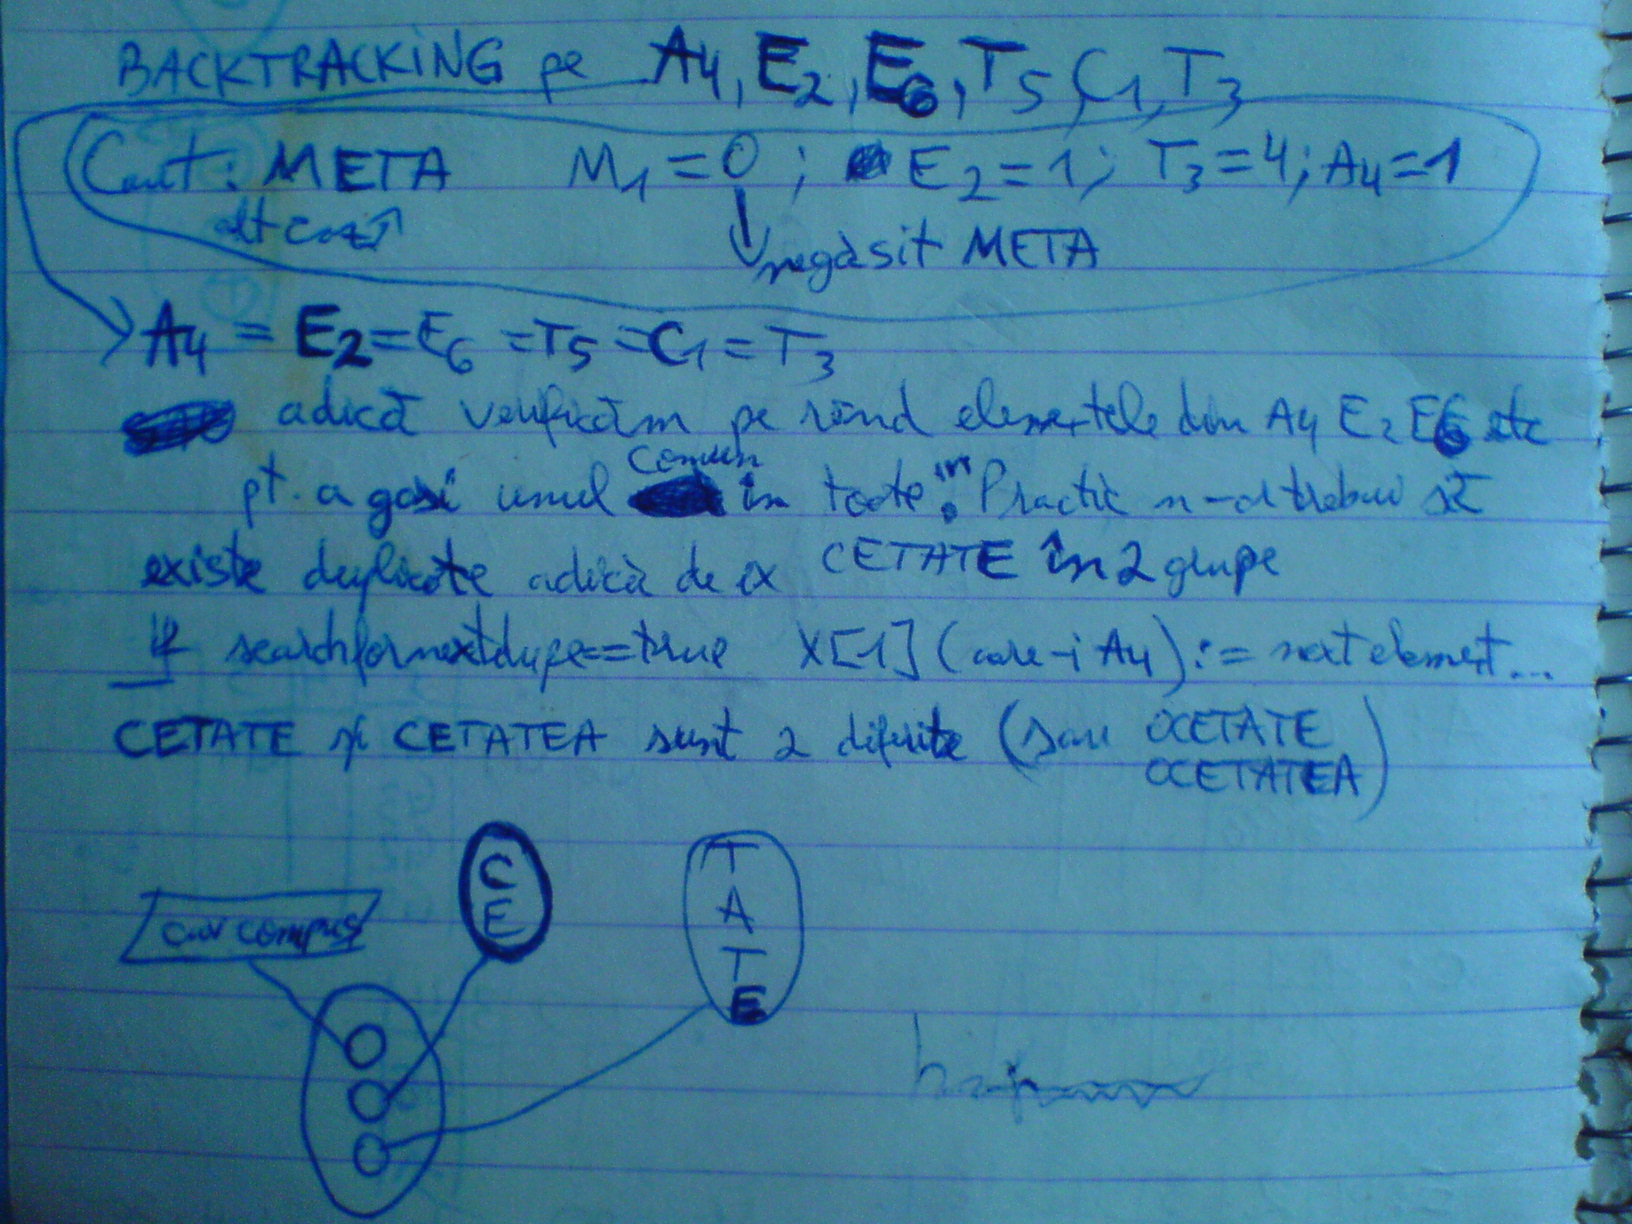 BACKTRACKING pe A4, E2, E6, T5, C1, T3
Caut: META M1=0; E2=1; T3=4; A4=1
alt caz
negăsit META
A4 = E2=E6=T5=C1=T3
adică verificăm pe rând elementele din A4 E2 E6 etc
pt. a găsi unul comun în toate. Practic n-ar trebui să
existe duplicate adică de ex CETATE în 2 grupe
If searchfornextdupe==true X[1] (care-i A4) := next element...
CETATE și CETATEA sunt 2 diferite (sau OCETATE
OCETATEA)
C
E
T
A
T
E
cuv compus